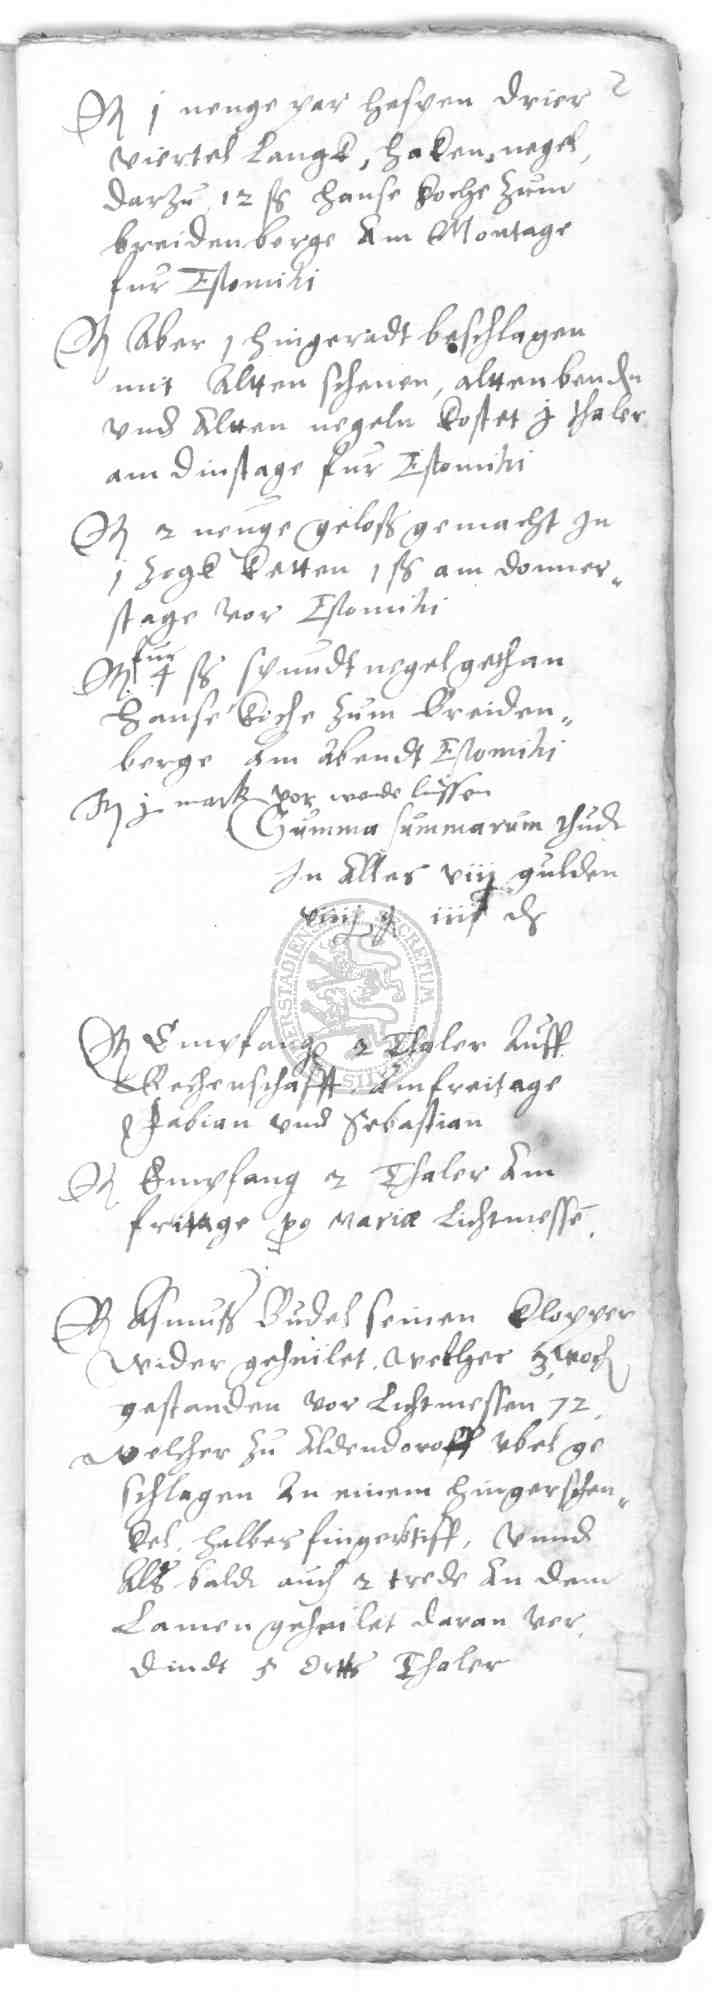 2
R 1 nenge par hespen drier
viertel Langk, haken, negel,
darzu 12 ß hanse koche zum
breidenberge Am Montage
fur Estomihi
R Aber 1 hingeradt beschlagen
mit Altten schenen, altten benden
vnd Altten negeln kostet j thaler
am dinstage fur Estomihi
R 2 neuge geloß gemacht In
1 zogk ketten 1 ß am donner„
stage vor Estomihi
R fur 4 ß spundt negel gethan
hanse koche zum breiden„
berge Am Abendt Estomihi
R j mark vor
Summa summarum thudt
In Alles viij gulden
viiij g iiij d
R Empfang 2 Thaler Auff
Rechenschafft Am freitage
Fabian vnd Sebastian
R Empfang 2 Thaler Am
frittage Mariæ Lichtmesse.
R Asmuß Budel seinen Klopper
wider geheilet, welcher 3 woch
gestanden vor Lichtmessen 72,
welcher zu Aldendoroff vbel ge
schlagen An einem hingerschen„
kel, halbes fingers tiff, vnnd
Alß baldt auch 2 trede An dem
Lamen geheilet daran ver
dindt 5 Ortts Thaler